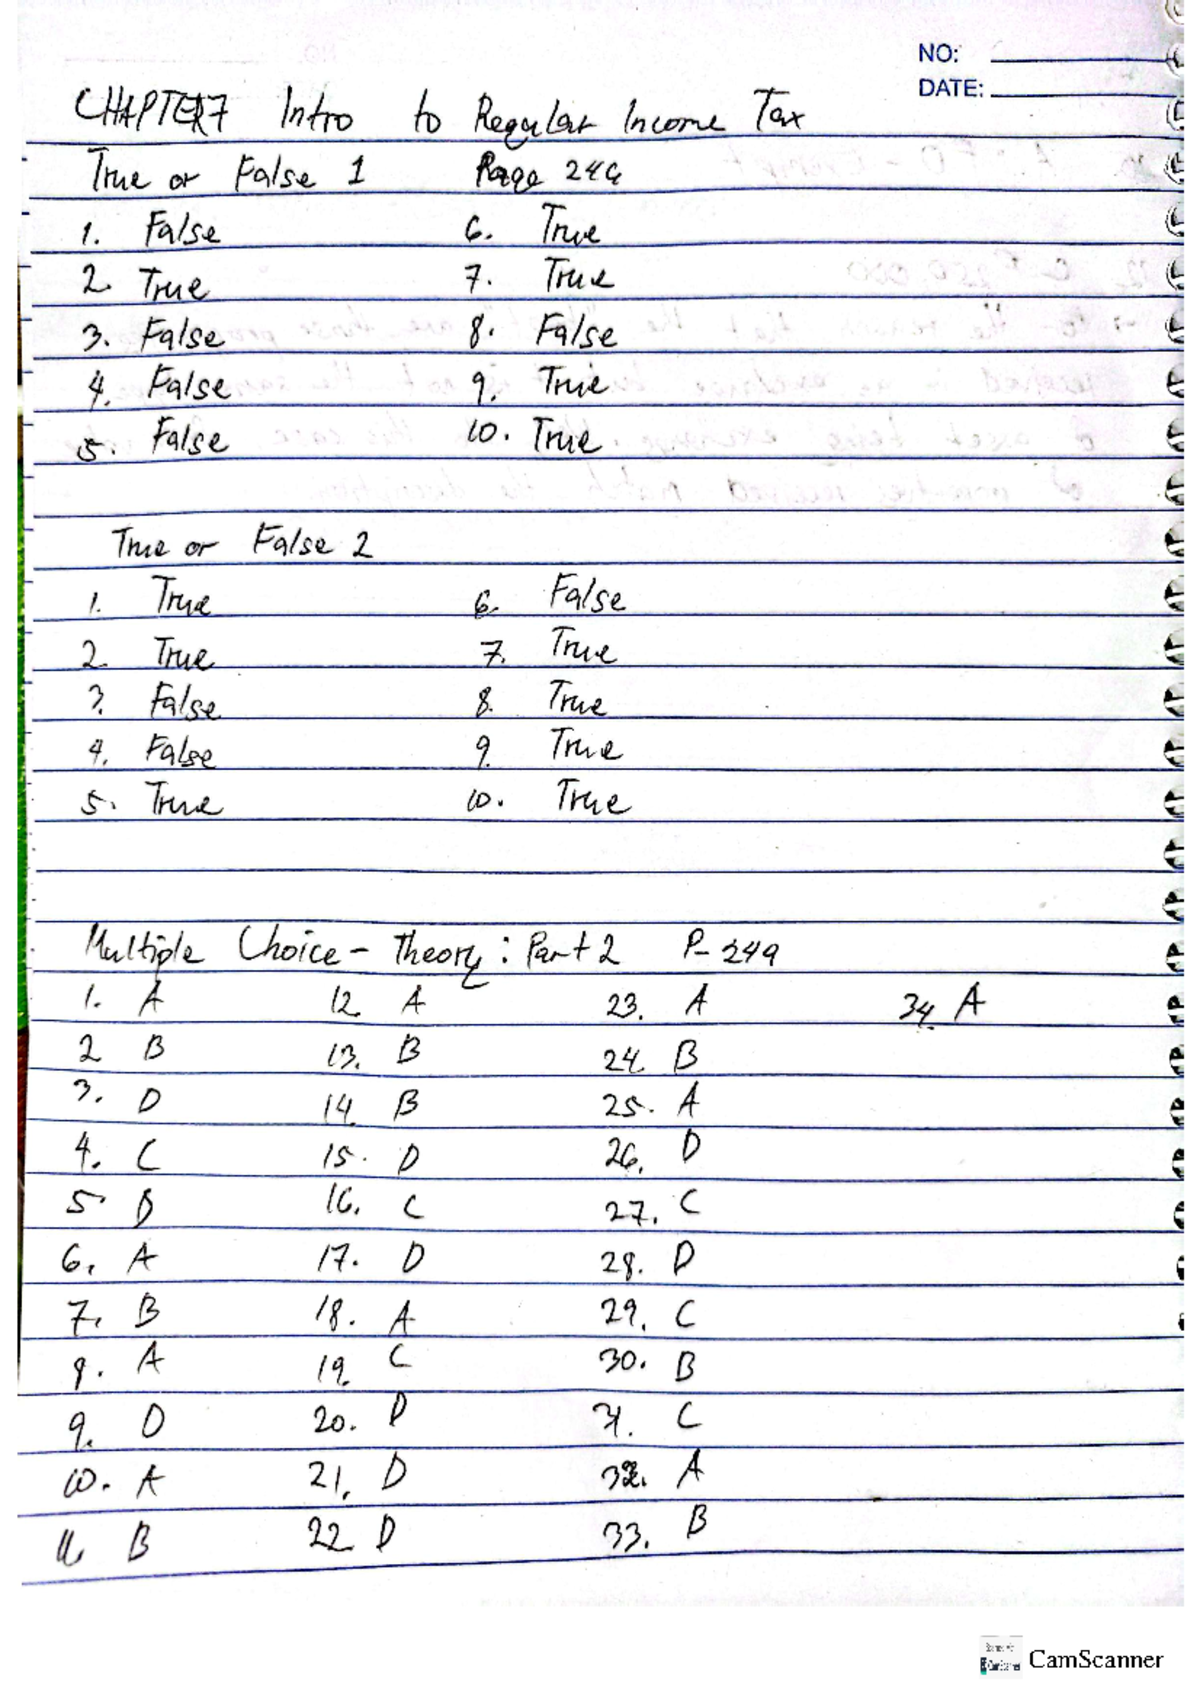 NO:
DATE:
CHAPTER7 Intro to Regular Income Tax
True or False 1 Page 244
1. False 6. True
2. True 7. True
3. False 8. False
4. False 9. True
5. False 10. True
True or False 2
1. True 6. False
2 True 7. True
3. False 8. True
4. False 9. True
5. True 10. True
Multiple Choice - Theory: Part 2 P- 249
1. A 12. A 23. A 34. A
2 B 13. B 24. B
3. D 14. B 25. A
4. C 15. D 26. D
5. D 16. C 27. C
6. A 17. D 28. D
7. B 18. A 29. C
8. A 19. C 30. B
9. D 20. D 31. C
10. A 21. D 32. A
11. B 22 D 33. B
CamScanner